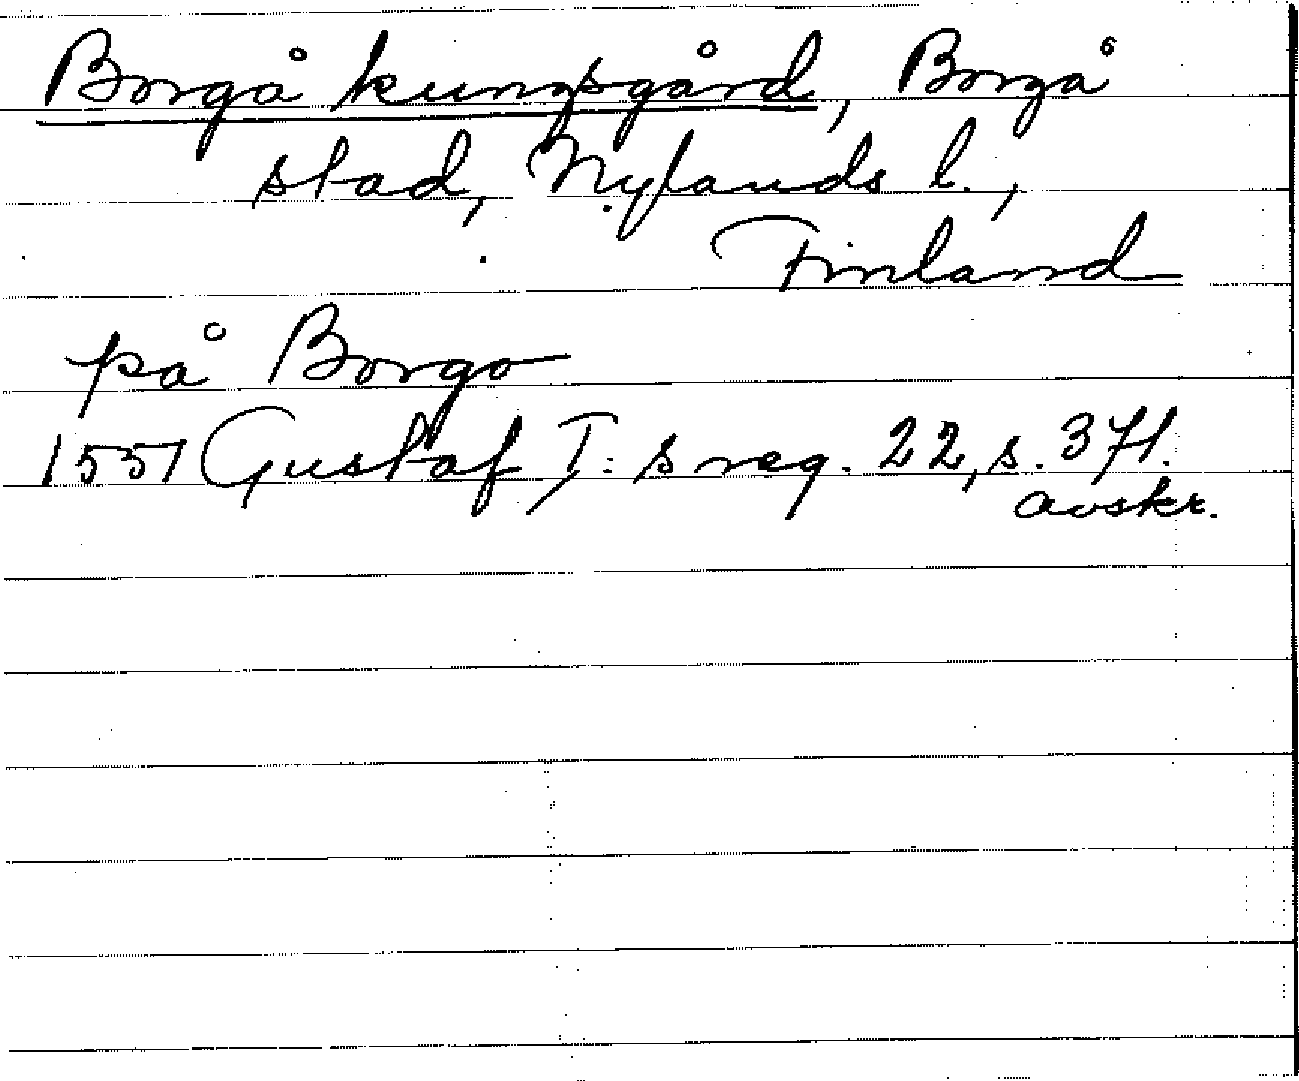 Borgå kungsgård, Borgå
stad, Nylands l.,
Finland
på Borgo
1551 Gustaf I:s reg. 22, s. 371.
avskr.